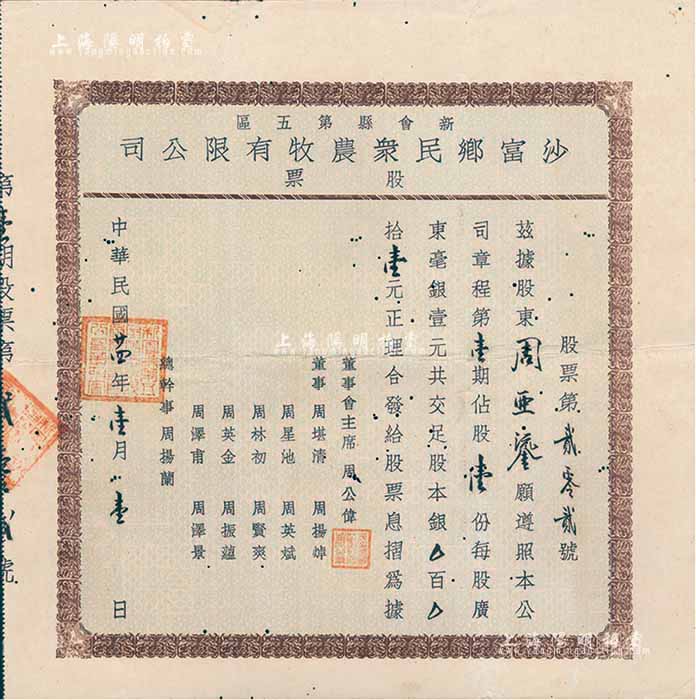 上海陽明拍賣
www.yangmingauction.com
新會縣第五區
沙富鄉民衆農牧有限公司
股票
股票第貳零貳號
兹據股東周亜鎏願遵照本公
司章程第壹期佔股壹份每股廣
東毫銀壹元共交足股本銀△百△
拾壹元正理合發給股票息摺爲據
董事會主席 周公偉
董事 周堪濤 周揚焯
周星池 周英斌
周林初 周賢爽
周英金 周振蘊
周澤甫 周澤景
總幹事 周揚蘭
中華民國廿四年壹月 壹日
第壹期股票第貳零貳號
上海陽明拍賣
www.yangmingauction.com
上海陽明拍賣
www.yangmingauction.com